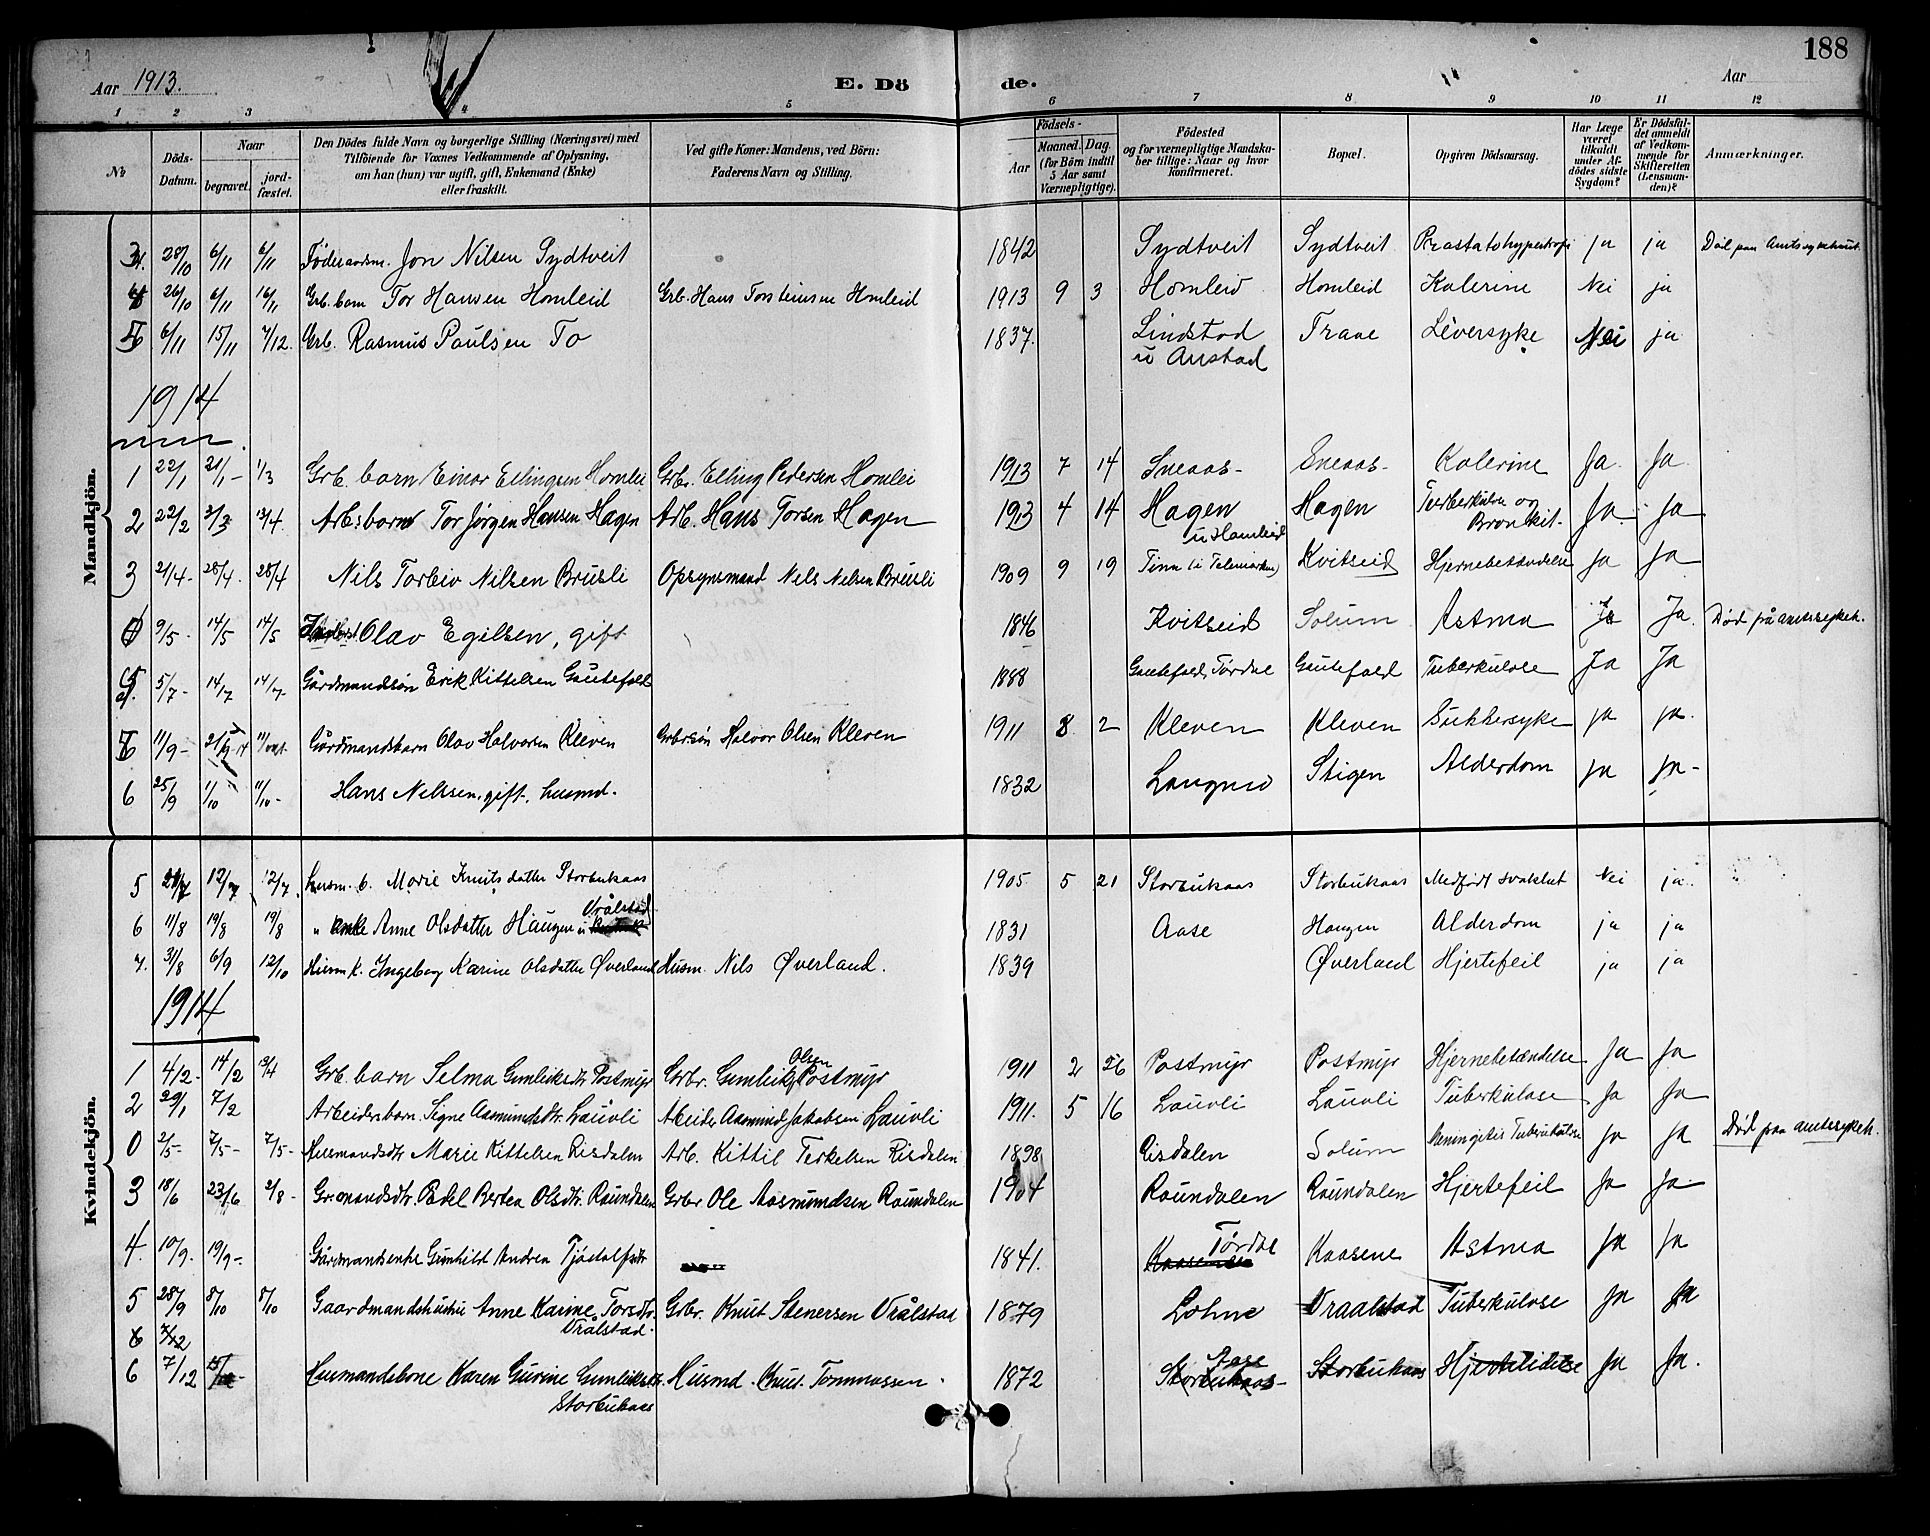 188
Aar 1913.
E. Döde.
Aar
1 2 3 4 5 6 7 8 9 10 11 12
No
Döds-Datum.
Naar
begravet.
jord-fæstet.
Den Dödes fulde Navn og borgerlige Stilling (Næringsvei) med
Tilföiende for Voxnes Vedkommende af Oplysning,
om han (hun) var ugift, gift, Enkemand (Enke)
eller fraskilt.
Ved gifte Koner: Mandens, ved Börn:
Faderens Navn og Stilling.
Födsels-
Aar
Maaned. Dag.
(for Börn indtil
5 Aar samt
Værnepligtige).
Födested
og for værnepligtige Mandska-
ber tillige: Naar og hvor
konfirmeret.
Bopæl.
Opgiven Dödsaarsag.
Har Læge
været
tilkaldt
under Af-
dödes sidste
Sygdom?
Er Dödsfal-
det anmeldt
af Vedkom-
mende for
Skifteretten
(Lensman-
den)?
Anmærkninger.
Mandkjön.
28/10 6/11 6/11 Føderaadsm. Jon Nilsen Sydtveit 1842 Sydtveit Sydtveit Prostatahypertrofi ja ja Död paa Amtssykehuset.
26/10 6/11 16/11 Grb. barn Tor Hansen Homleid Grb. Hans Torsteinsen Homleid 1913 9 3 Homleid Homleid Kolerine Nei ja
6/11 15/11 7/12. Grb. Rasmus Paulsen To 1837. Lindstod Traae Leversyke Nei ja
u Austad
1914
1 22/1 Grb. barn Einar Ellingsen Homlei Grbr. Elling Pedersen Homlei 1913 7 14 Sneaas- Sneaas- Kolerine Ja. Ja.
2 22/2 3/3 13/4. Arbsbarn Tor Jørgen Hansen Hagen Arb. Hans Torsen Hagen 1913 4 14 Hagen Hagen Tuberkulose og
u Homleid Bronkit. Ja Ja
3 21/4- 28/4. 28/4 Nils Torbiø Nilsen Brusli Opsynsmand Nils Nilsen Brusli 1909 9 19 Tinn (i Telemarken) Kvitseid Hjernebetændelse Ja Ja
0 9/5- 14/5 14/5 Olav Egilsen, gift 1846 Kvitseid Solum Astma Ja Ja. Død på amtssykeh.
5/7- 14/7 14/7- Gårdmandssøn Erik Kittelsen Gautefald 1888 Gautefald, Tørdal Gautefald Tuberkulose Ja Ja
11/9- Gårdmandsbarn Olav Halvorsen Kleven Grbrsøn Halvor Olsen Kleven 1911 8 2 Kleven Kleven Sukkersyke ja ja.
6 25/9 1/10 11/10- Hans Nilssen, gift, husmd. 1832 Langmo Stigen Alderdom ja ja-
Kvindekjön.
5 12/7 12/7. Husm. b. Marie Knutsdatter Storbukaas 1905 5 21 Storbukaas Storbukaas Medfødt svakhet Nei ja.
6 11/8 19/8 19/8 " enke Anne Olsdatter Haugen u Vrålstad 1831 Aase Haugen Alderdom ja ja
7. 31/8 6/9 12/10 Husm k. Ingeborg Karine Olsdatter Øverland Husm. Nils Øverland. 1839 Øverland Hjertefeil ja ja
1914
1 4/2- 14/2 13/4 Grb. barn Selma Gunleiksdtr Postmyr Grbr. Gunleik Olsen Postmyr 1911 2 26 Postmyr Postmyr Hjernebetændelse Ja Ja
2 29/1 7/2 Arbeidersbarn Signe Aasmundsdtr. Lauvli Arbeider Aasmund Jakobsen Lauvli 1911. 5 16 Lauvli Lauvli Tuberkulose Ja Ja
0 2/5- 7/5- 7/5- Husmandsdtr Marie Kittelsen Risdalen Arb. Kittil Terkelsen Risdalen 1898 Risdalen Solum Meningitis Tuberkulose Ja Ja Død paa amtssykeh.
3 18/6 23/6 2/8- Gr.mandsdtr. Pedel Bertea Olsdtr. Raundalen Grbr. Ole Aasmundsen Raundalen 1904 Raundalen Raundalen Hjertefeil Ja Ja.
4. 10/9. 19/9-. Gårdmandsenke Gunhild Andrea Tjøstolfsdtr 1841. Tørdal Kaasene Astma Ja Ja
5 28/9 8/10 8/10 Gaardmandshustru Anne Karine Torsdtr. Grbr. Knut Stenersen Vrålstad 1879 Lohne Vraalstad Tuberkulose Ja Ja
Vrålstad.
6 7/12
6 7/12 Husmandskone Karen Gurine Gunleiksdtr. Husmd. Knut Tommassen. 1872 Aase Storbukaas Hjertelidelse Ja Ja.
Storbukaas Storbukaas-